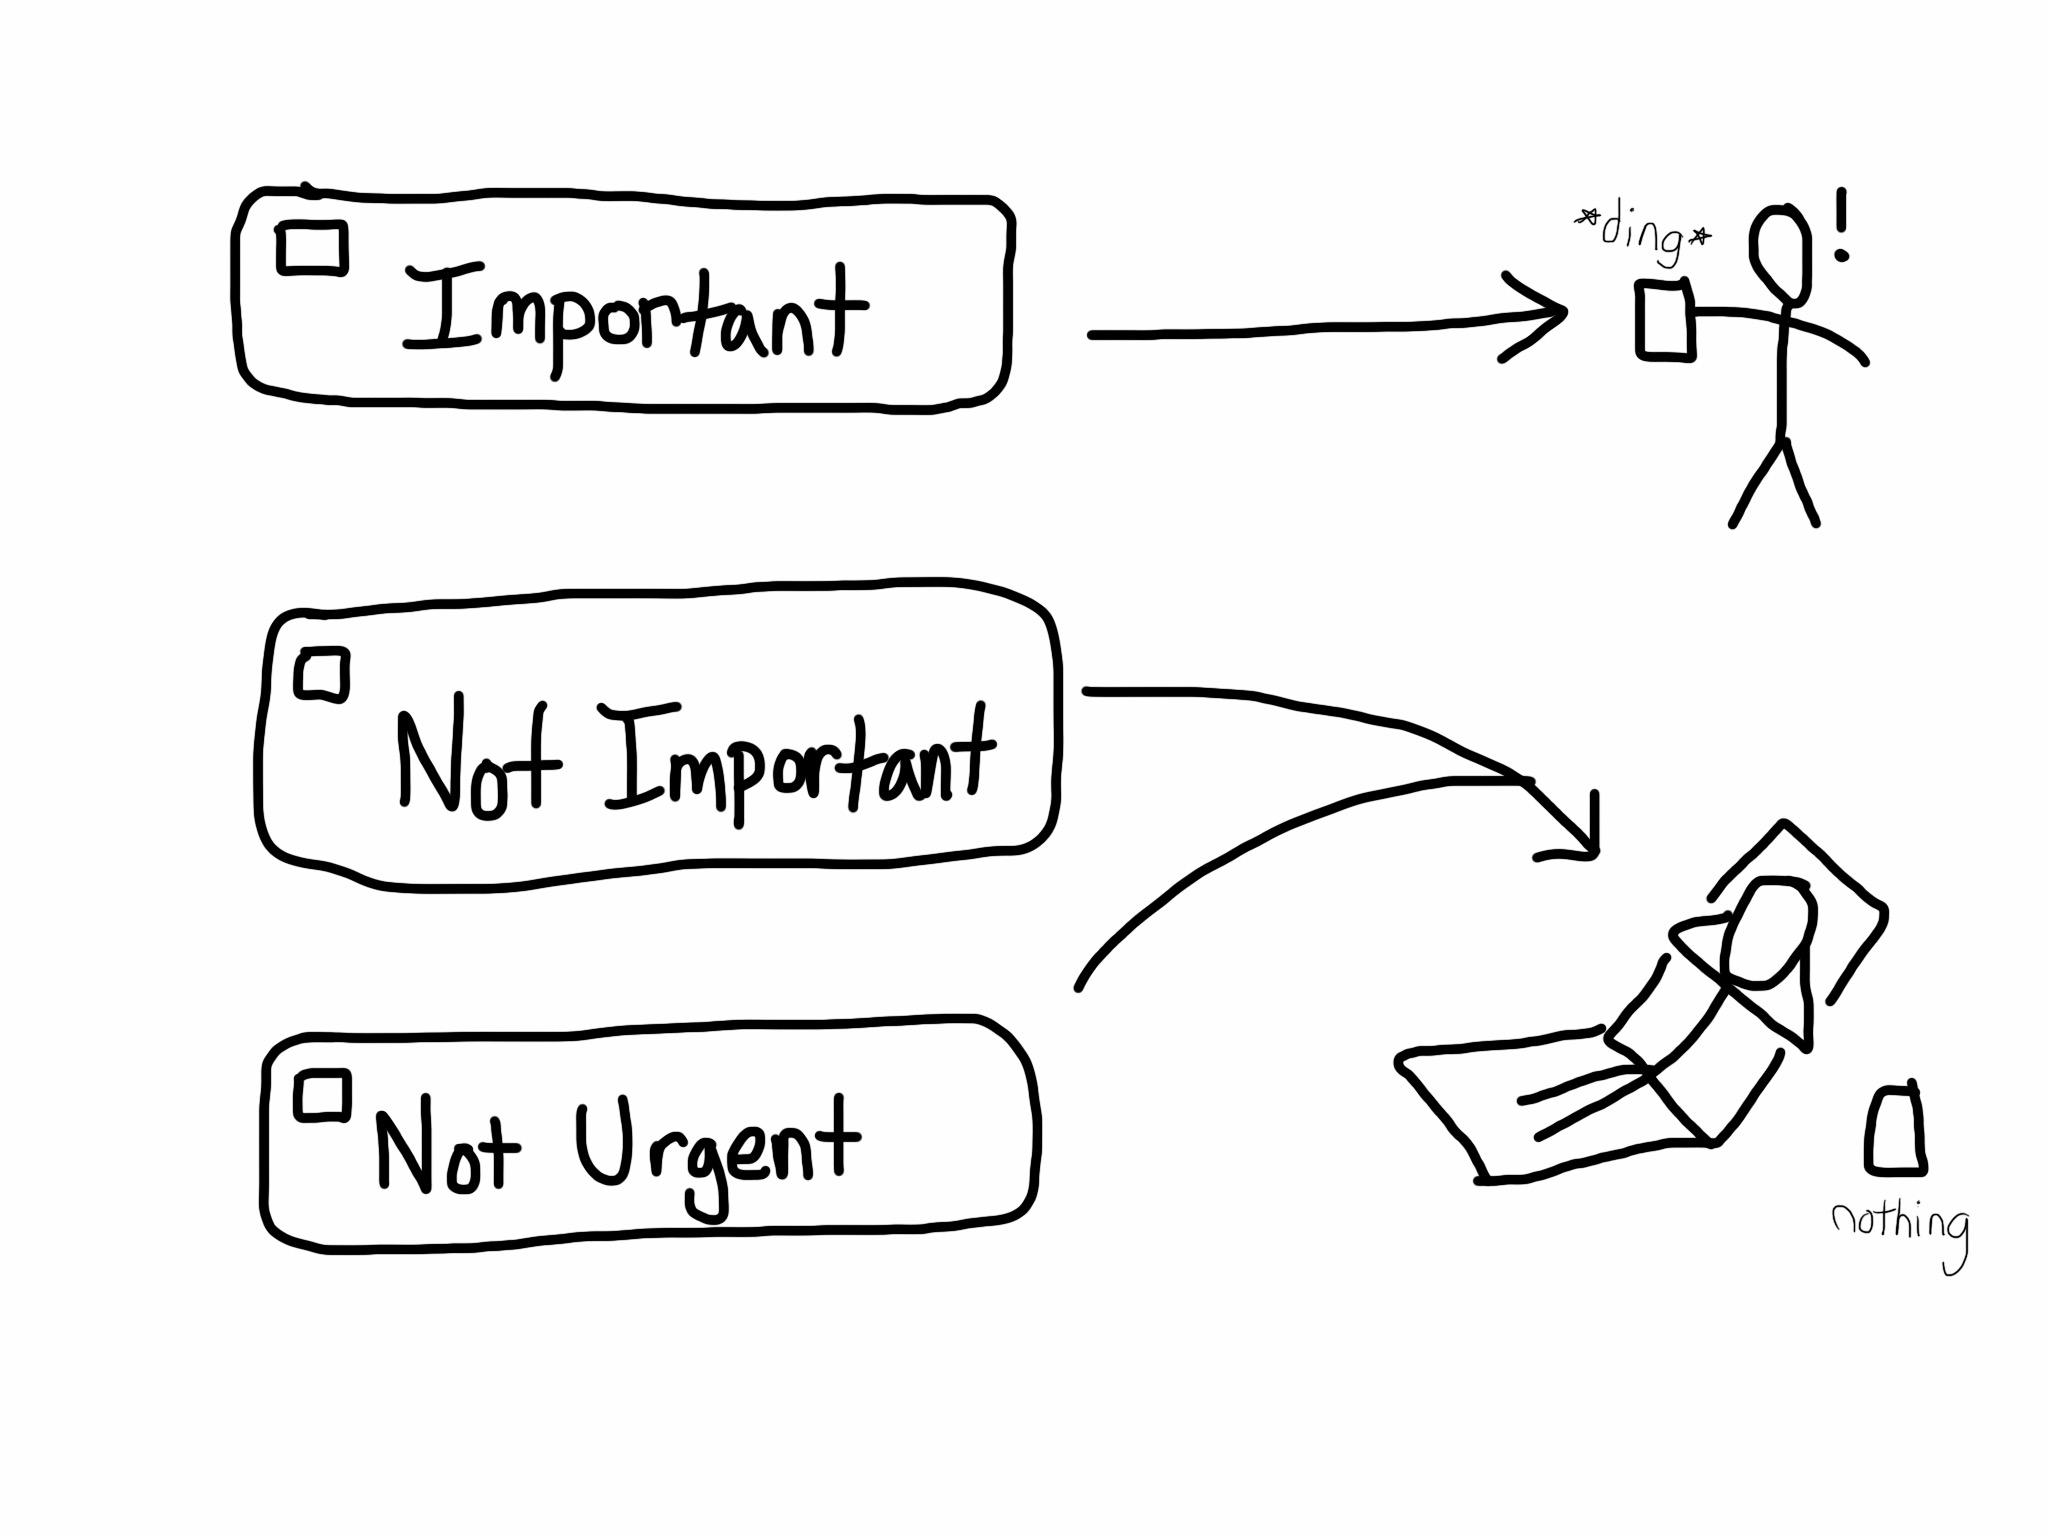 Important
*ding*
!
Not Important
Not Urgent
nothing